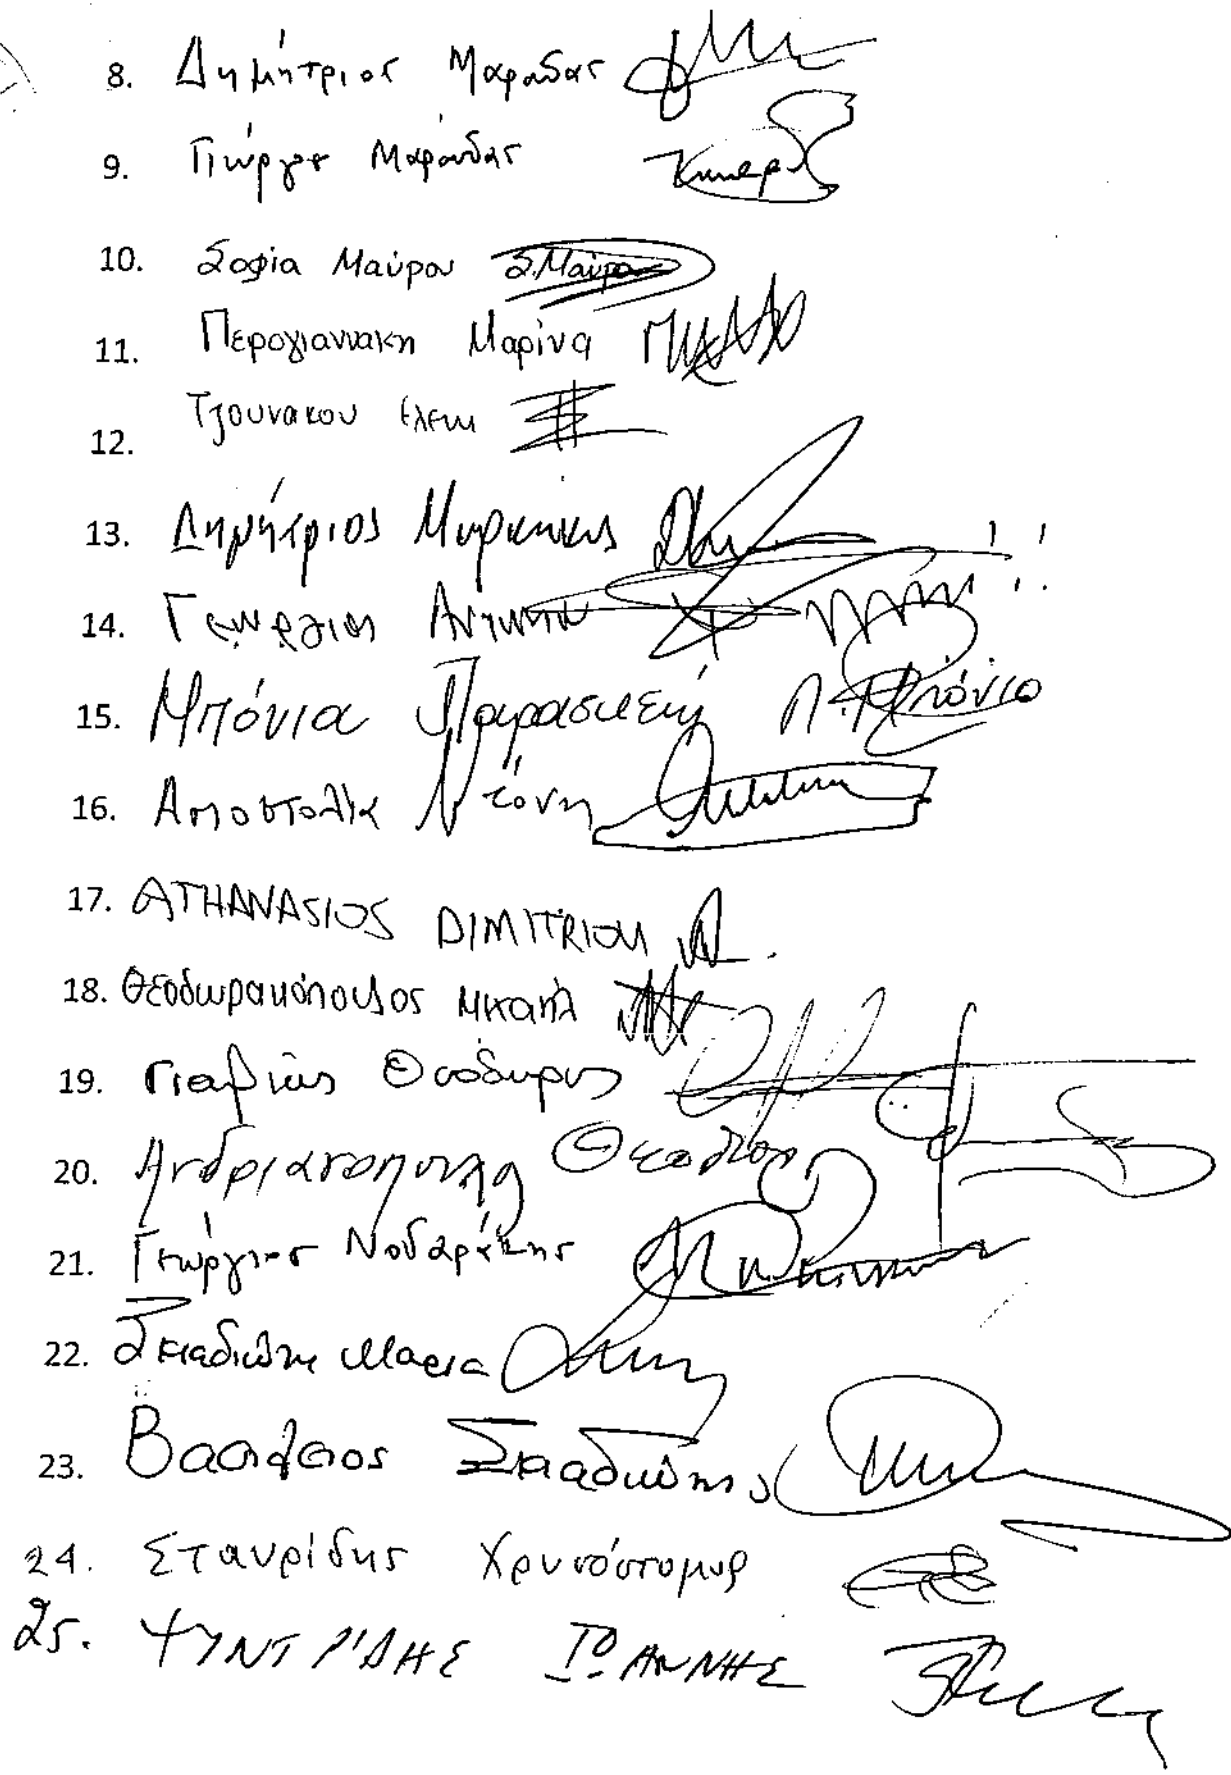 8. Δημήτριος Μαρούδας
9. Γιώργος Μαρούδας
10. Σοφία Μαύρου Σ.Μαύρου
11. Περογιαννακη Μαρίνα
12. Τζουνακου Ελενη
13. Δημήτριος
14. Γεωργιος Αντωνιου
15. Μπόνια Παρασκευή Π. Μπόνια
16. Αποστολια Ντόνη
17. ATHANASIOS DIMITRIOU
18. Θεοδωρακόπουλος Μιχαήλ
19. Θεόδωρος
20. Ανδριανοπουλος
21. Γεώργιος Νοδαράκης
22. Σκιαδιώτη Μαρια
23. Βασιλειος Σκιαδιώτης
24. Σταυρίδης Χρυσόστομος
25. ΨΥΝΤΡΙΔΗΣ ΙΩΑΝΝΗΣ